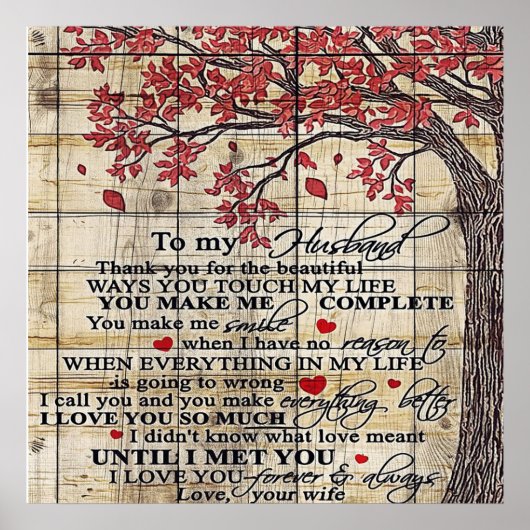 To my Husband
Thank you for the beautiful
WAYS YOU TOUCH MY LIFE
YOU MAKE ME COMPLETE
You make me smile
when I have no reason to
WHEN EVERYTHING IN MY LIFE
is going to wrong
I call you and you make everything better
I LOVE YOU SO MUCH
I didn't know what love meant
UNTIL I MET YOU
I LOVE YOU forever & always
Love, your wife